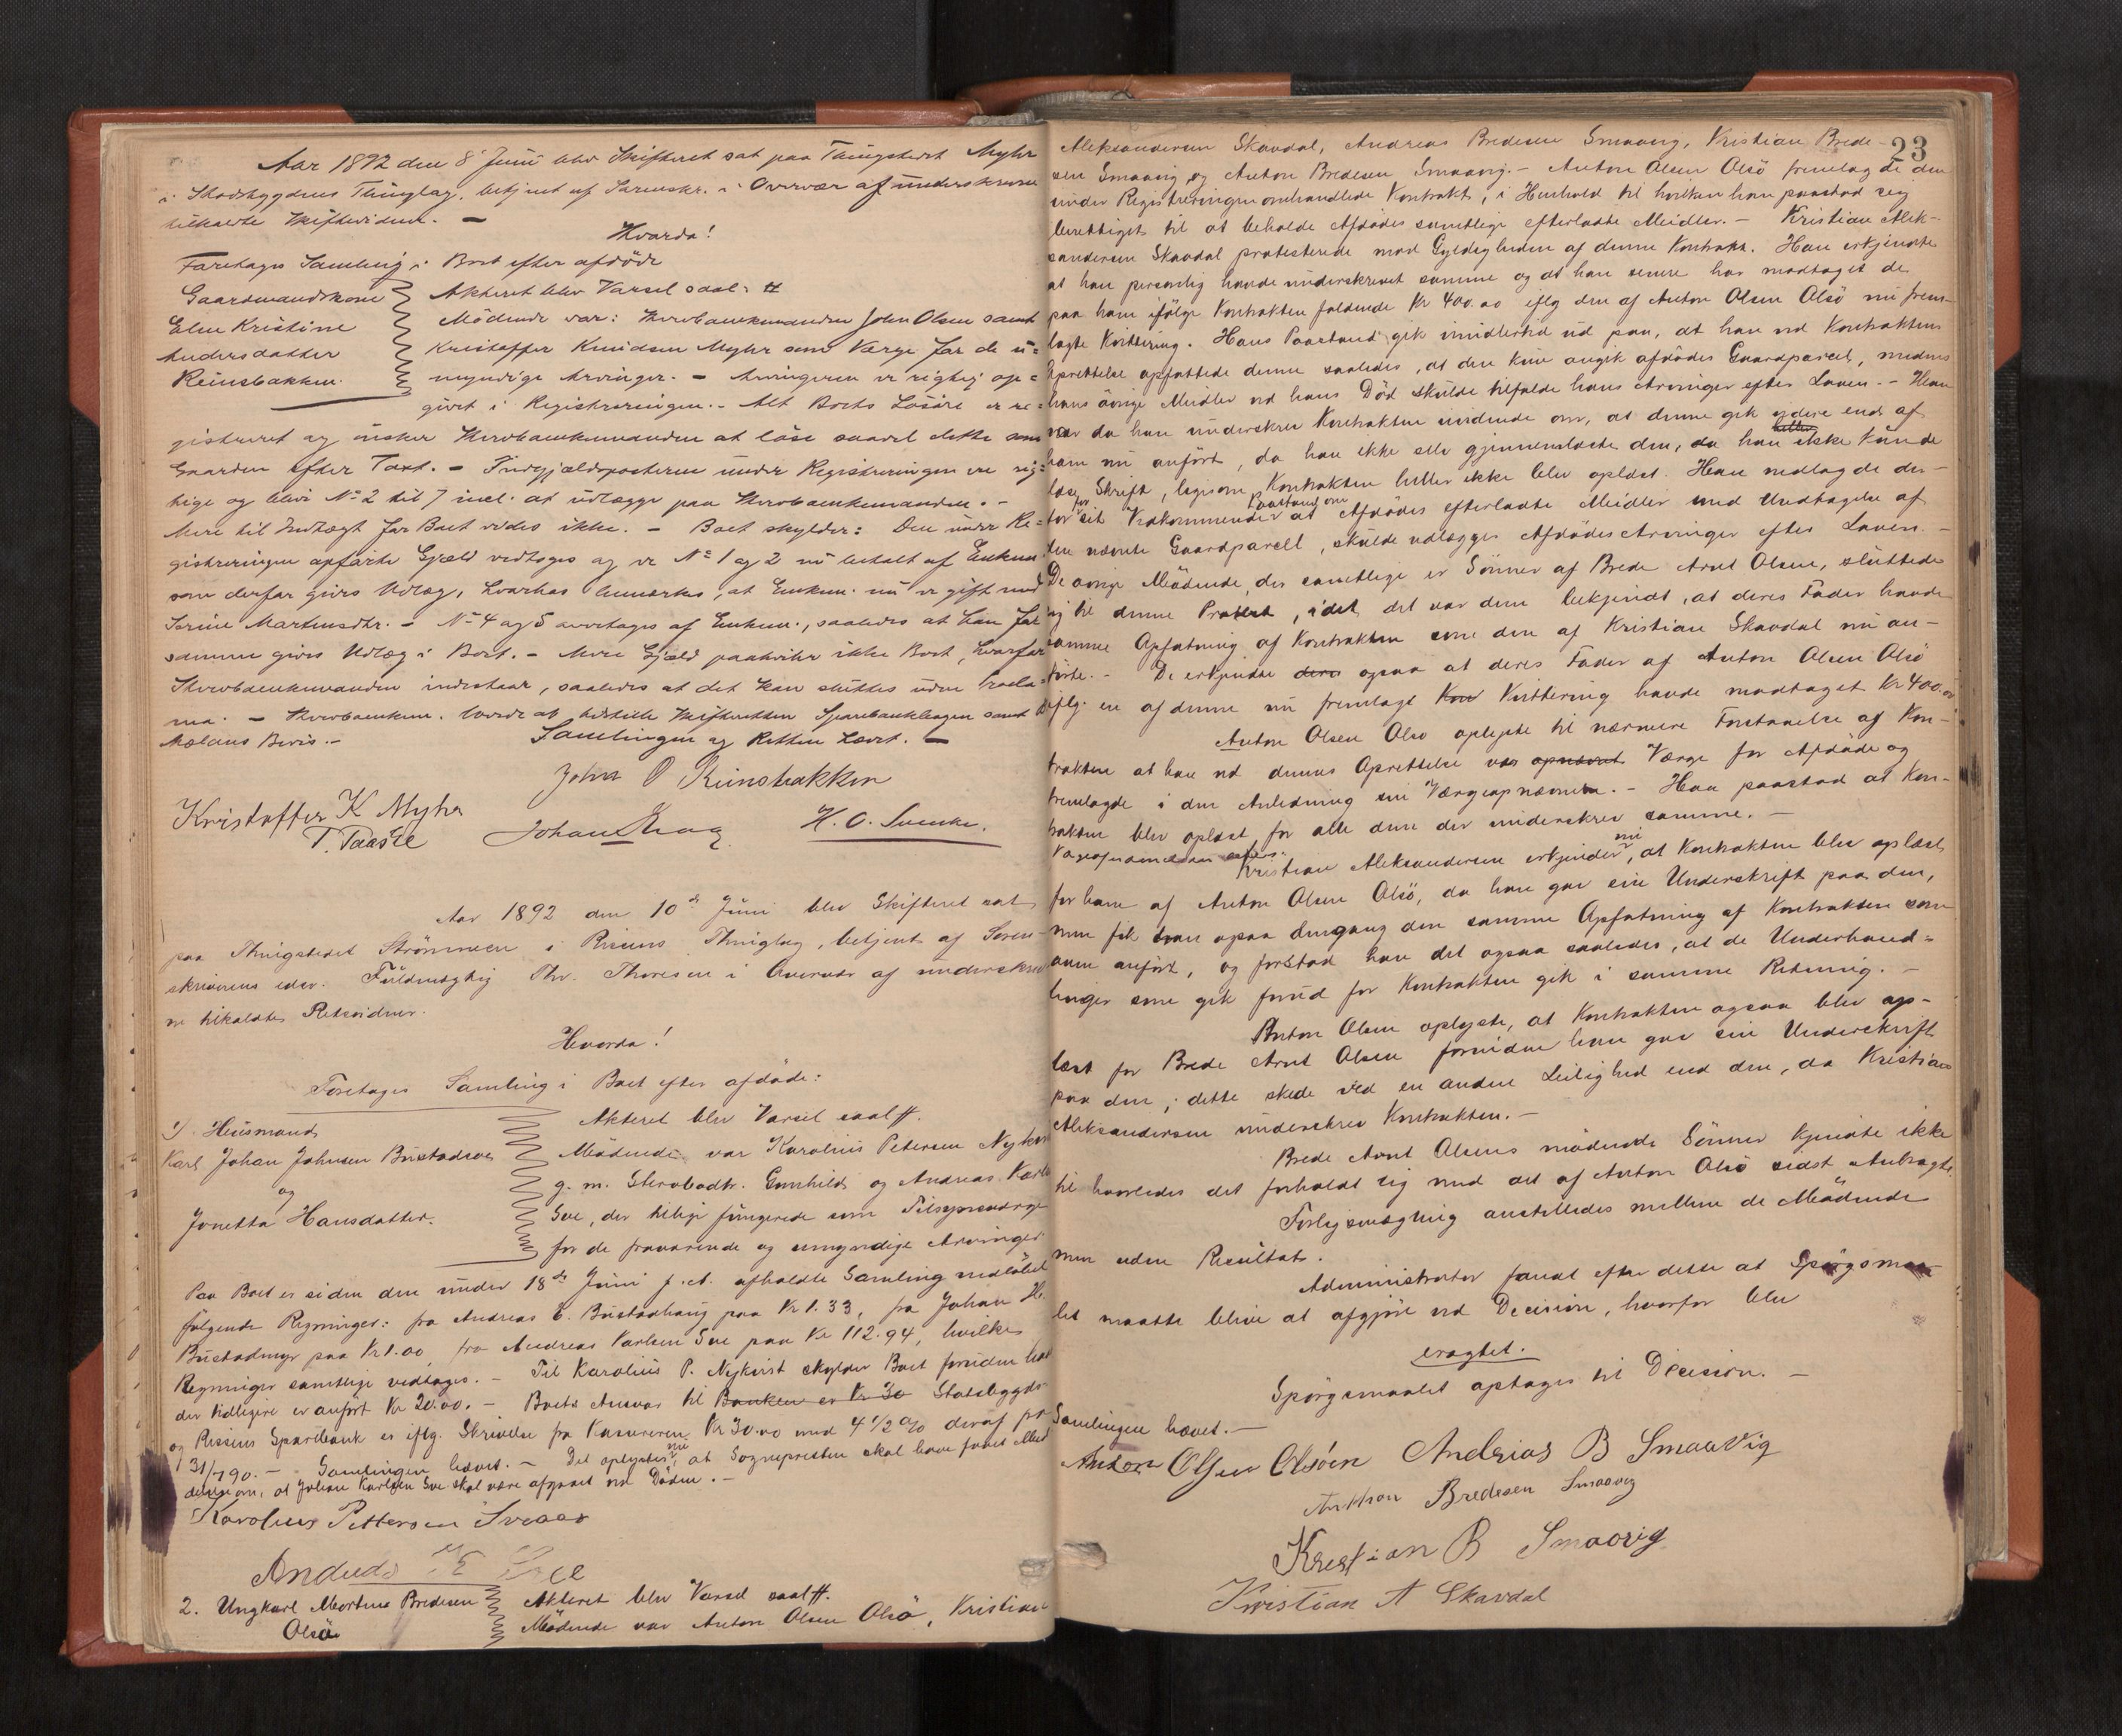 Aar 1892 den 8 Juni blev Skifteret sat paa Thingstedet Myhr
i Stadsbygdens Thinglag, betjent af Sorenskr. i Overvær af underskrevne
tilkaldte Skiftevidner. —
Hvorda!
Foretages Samling i Boet efter afdöde
Gaardmandskone
Elen Kristine
Andersdatter
Reinsbakken.
Akteret blev Varsel saal. #
Mödende var: Stervboenkemanden John Olsen samt
Kristoffer Knudsen Myhr som Værge for de u=
myndige Arvinger. — Arvingerne er rigtig op=
givet i Registreringen. — Alt Boets Lösöre er re=
gistreret og önsker Stervboenkemanden at löse saavel dette som
Gaarden efter Taxt. — Indgjældsposterne under Registreringen ere rig=
tige og blive No 2 til 7 incl. at udlægge paa Stervboenkemanden. —
Mere til Indtægt for Boet vides ikke. — Boet skylder: Den under Re=
gistreringen opförte Gjæld vedtoges og er No 1 og 2 nu betalt af Enkem.
som derfor gives Udlæg, hvorhos bemærkes, at Enkem. nu er gift med
Serine Martensdtr. — No 4 og 5 overtages af Enkem., saaledes at han for
samme gives Udlæg i Boet. — Mere Gjæld paahviler ikke Boet, hvorfor
Stervboenkemanden indestaar, saaledes at det kan sluttes uden Procla=
ma. — Stervboenkem. lovede at tilstille Skifteretten Sparebankbogen samt
Mælans Bevis. —
Samlingen og Retten hævet. —
John O Reinsbakken
Kristoffer K Myhr
T. Taasïe
Johan Krog
H. O. Svenke.
Aar 1892 den 10de Juni blev Skifteret sat
paa Thingstedet Strömmen i Rissens Thinglag, betjent af Soren-
skriverens edsv. Fuldmægtig Thv. Thoresen i Overvær af underskrev
ne tilkaldte Retsvidner.
Hvorda!
Foretages Samling i Boet efter afdöde:
1) Husmand
Karl Johan Johnsen Bustadsve
og
Jonetta Hansdatter.
Akteret blev Varsel saal #.
Mödende var Karolius Petersen Nykvist
g. m. Stervbodtr. Gunhild og Andreas Karls
Sve, der tillige fungerede som Tilsynsværge
for de fraværende og umyndige Arvinger
Paa Boet er siden den under 18de Juni f. A. afholdte Samling indlöbet
fölgende Regninger: fra Andreas E. Bustadhaug paa Kr 1.33, fra Johan H.
Bustadmyr paa Kr 1.00, fra Andreas Karlsen Sve paa Kr 112.94, hvilke
Regninger samtlige vedtoges. — Til Karolius P. Nykvist skylder Boet foruden hvad
der tidligere er anfört Kr 20.00. — Boets Ansvar til Banken er Kr 30 Stadsbygds
og Rissens Sparebank er iflg. Skrivelse fra Kassereren Kr 30.00 med 4 1/2 % deraf fra
31/7 90. — Samlingen hævet. — Det oplystes nu, at Sognepresten skal have faaet Med
delelse om, at Johan Karlsen Sve skal være afgaaet ved Döden. —
Karolius Pettersen Sveaas
Andreas K Sve
2. Ungkarl Mortinus Bredesen
Olsö
Akteret blev Varsel saal #.
Mödende var Anton Olsen Olsö, Kristian
23
Aleksandersen Skavdal, Andreas Bredesen Smaavig, Kristian Brede-
sen Smaavig og Anton Bredesen Smaavig. — Anton Olsen Olsö fremlagde den
under Registreringen omhandlede Kontrakt, i Henhold til hvilken han paastod sig
berettiget til at beholde Afdödes samtlige efterladte Meidler. — Kristian Alek-
sandersen Skavdal protesterede mod Gyldigheden af denne Kontrakt. Han erkjendte
at han personlig havde underskrevet samme og at han senere har modtaget de
paa ham ifölge Kontrakten faldende Kr 400.00 iflg den af Anton Olsen Olsö nu frem-
lagte Kvittering. Hans Paastand gik imidlertid ud paa, at han ved Kontraktens
Oprettelse opfattede denne saaledes, at den kun angik afdödes Gaardparcel, medens
hans övrige Meidler ved hans Död skulde tilfalde hans Arvinger efter Loven. — Han
var da han underskrev Kontrakten uvidende om, at denne gik videre end af
ham nu anfört, da han ikke selv gjennemlæste den, da han heller ikke kunde
læse Skrift, ligesom Kontrakten heller ikke blev oplæst. Han nedlagde der-
for for sit Vedkommende Paastand om at Afdödes efterladte Meidler med Undtagelse af
den nævnte Gaardparcell, skulde udlægges Afdödes Arvinger efter Loven. —
De övrige Mödende, der samtlige er Sönner af Brede Arnt Olsen, sluttede
sig til denne Protest, idet det var dem bekjendt, at deres Fader havde
samme Opfatning af Kontrakten som den af Kristian Skavdal nu an-
förte. — De erkjendte deres ogsaa at deres Fader af Anton Olsen Olsö
iflg. en af denne nu fremlagt Kon Kvittering havde modtaget Kr 400.00
Anton Olsen Olsö oplyste til nærmere Forstaaelse af Kon-
trakten at han ved dennes Oprettelse var opnævnt Værge for Afdöde og
fremlagde i den Anledning sin Værgeopnævnelse. — Han paastod at Kon-
trakten blev oplæst for alle dem der underskrev samme. —
Værgeopnævnelsen vedlægges.
Kristian Aleksandersen erkjender nu, at Kontrakten blev oplæst
for ham af Anton Olsen Olsö, da han gav sin Underskrift paa den,
men fik han ogsaa dengang den samme Opfatning af Kontrakten som
oven anfört, og forstod han det ogsaa saaledes, at de Underhand=
linger som gik forud for Kontrakten gik i samme Retning. —
Anton Olsen oplyste, at Kontrakten ogsaa blev op-
læst for Brede Arnt Olsen forinden han gav sin Underskrift
paa den; dette skede ved en anden Leilighed end den, da Kristian
Aleksandersen underskrev Kontrakten. —
Brede Arnt Olsens mödende Sönner kjendte ikke
til hvorledes det forholdt sig med det af Anton Olsö sidst Anbragte.
Forligsmægling anstilledes mellem de Mödende
men uden Resultat.
Administrator fandt efter dette at Spörgsmaa-
let maatte blive at afgjöre ved Decision, hvorfor blev
eragtet.
Spörgsmaalet optages til Decision. —
Samlingen hævet. —
Anton Olsen Olsöen Andreas B Smaavig
Anthon Bredesen Smaavig
Krestian B Smaavig
Kristian A Skavdal